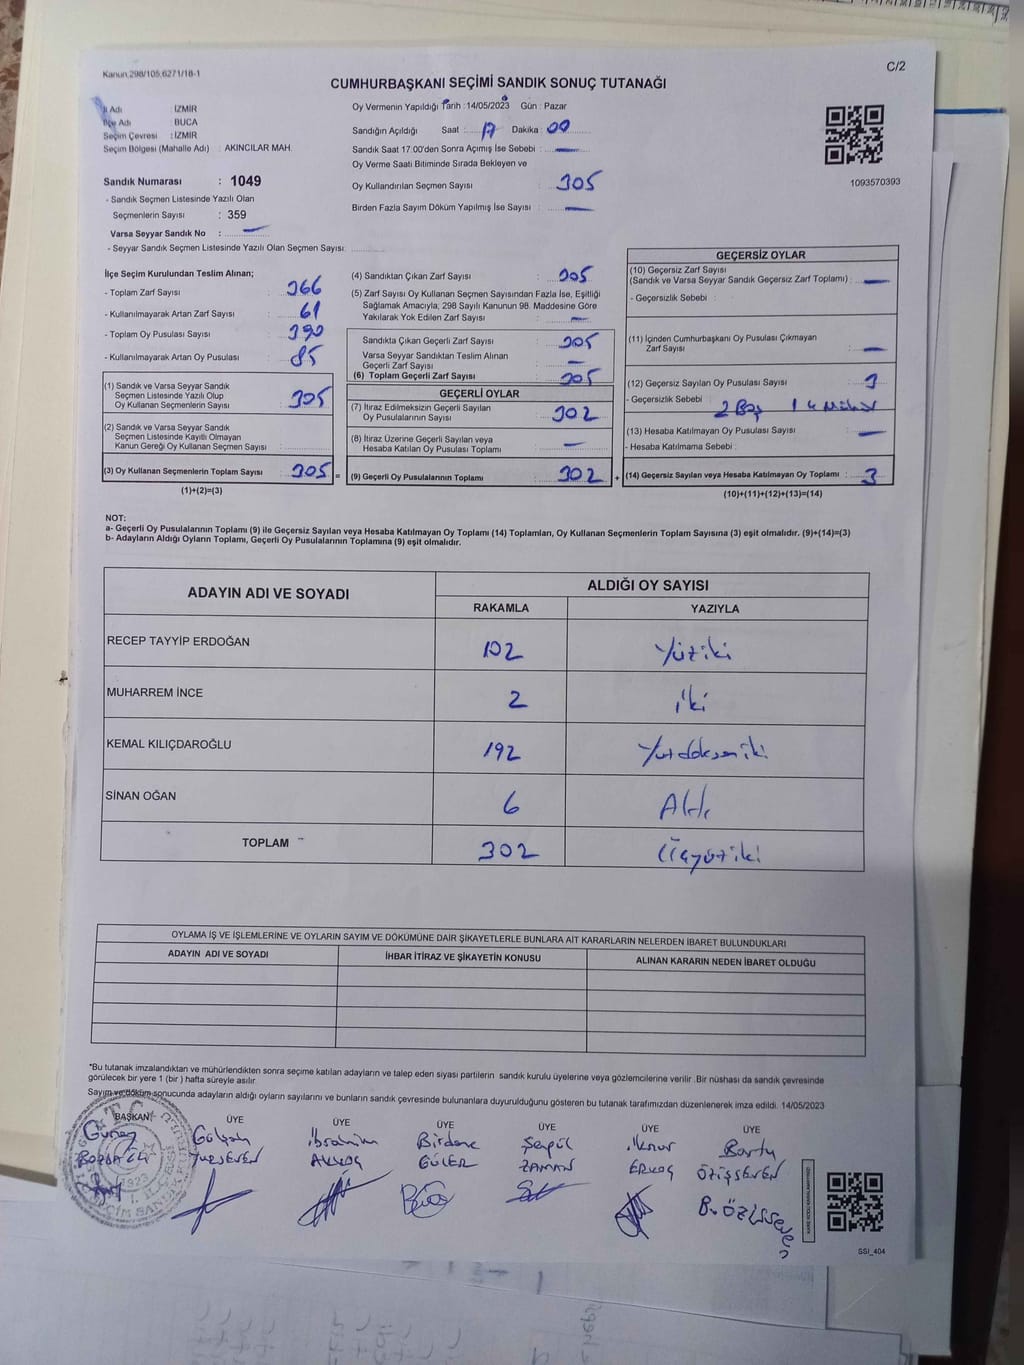 Kanun,298/105,6271/18-1
C/2
CUMHURBAŞKANI SEÇİMİ SANDIK SONUÇ TUTANAĞI
İl Adı : İZMİR
İlçe Adı : BUCA
Seçim Çevresi : İZMİR
Seçim Bölgesi (Mahalle Adı) : AKINCILAR MAH.
Sandık Numarası : 1049
- Sandık Seçmen Listesinde Yazılı Olan
Seçmenlerin Sayısı : 359
Varsa Seyyar Sandık No :
- Seyyar Sandık Seçmen Listesinde Yazılı Olan Seçmen Sayısı:
Oy Vermenin Yapıldığı Tarih :14/05/2023 Gün : Pazar
Sandığın Açıldığı Saat : 17 Dakika : 00
Sandık Saat 17:00'den Sonra Açımış İse Sebebi : —
Oy Verme Saati Bitiminde Sırada Bekleyen ve
Oy Kullandırılan Seçmen Sayısı : 305
Birden Fazla Sayım Döküm Yapılmış İse Sayısı : —
1093570393
İlçe Seçim Kurulundan Teslim Alınan;
- Toplam Zarf Sayısı : 366
- Kullanılmayarak Artan Zarf Sayısı : 61
- Toplam Oy Pusulası Sayısı : 390
- Kullanılmayarak Artan Oy Pusulası : 85
(1) Sandık ve Varsa Seyyar Sandık
Seçmen Listesinde Yazılı Olup
Oy Kullanan Seçmenlerin Sayısı : 305
(2) Sandık ve Varsa Seyyar Sandık
Seçmen Listesinde Kayıtlı Olmayan
Kanun Gereği Oy Kullanan Seçmen Sayısı :
(3) Oy Kullanan Seçmenlerin Toplam Sayısı : 305 =
(1)+(2)=(3)
(4) Sandıktan Çıkan Zarf Sayısı : 305
(5) Zarf Sayısı Oy Kullanan Seçmen Sayısından Fazla İse, Eşitliği
Sağlamak Amacıyla; 298 Sayılı Kanunun 98. Maddesine Göre
Yakılarak Yok Edilen Zarf Sayısı : —
Sandıkta Çıkan Geçerli Zarf Sayısı : 305
Varsa Seyyar Sandıktan Teslim Alınan
Geçerli Zarf Sayısı : —
(6) Toplam Geçerli Zarf Sayısı : 305
GEÇERLİ OYLAR
(7) İtiraz Edilmeksizin Geçerli Sayılan
Oy Pusulalarının Sayısı : 302
(8) İtiraz Üzerine Geçerli Sayılan veya
Hesaba Katılan Oy Pusulası Toplamı : —
(9) Geçerli Oy Pusulalarının Toplamı : 302 +
GEÇERSİZ OYLAR
(10) Geçersiz Zarf Sayısı
(Sandık ve Varsa Seyyar Sandık Geçersiz Zarf Toplamı) : —
- Geçersizlik Sebebi :
(11) İçinden Cumhurbaşkanı Oy Pusulası Çıkmayan
Zarf Sayısı : —
(12) Geçersiz Sayılan Oy Pusulası Sayısı : 3
- Geçersizlik Sebebi : 2 Boş 1
(13) Hesaba Katılmayan Oy Pusulası Sayısı : —
- Hesaba Katılmama Sebebi :
(14) Geçersiz Sayılan veya Hesaba Katılmayan Oy Toplamı : 3
(10)+(11)+(12)+(13)=(14)
NOT:
a- Geçerli Oy Pusulalarının Toplamı (9) ile Geçersiz Sayılan veya Hesaba Katılmayan Oy Toplamı (14) Toplamları, Oy Kullanan Seçmenlerin Toplam Sayısına (3) eşit olmalıdır. (9)+(14)=(3)
b- Adayların Aldığı Oyların Toplamı, Geçerli Oy Pusulalarının Toplamına (9) eşit olmalıdır.
ADAYIN ADI VE SOYADI
ALDIĞI OY SAYISI
RAKAMLA YAZIYLA
RECEP TAYYİP ERDOĞAN 102 Yüziki
MUHARREM İNCE 2 iki
KEMAL KILIÇDAROĞLU 192
SİNAN OĞAN 6 Altı
TOPLAM 302 Üçyüziki
OYLAMA İŞ VE İŞLEMLERİNE VE OYLARIN SAYIM VE DÖKÜMÜNE DAİR ŞİKAYETLERLE BUNLARA AİT KARARLARIN NELERDEN İBARET BULUNDUKLARI
ADAYIN ADI VE SOYADI İHBAR İTİRAZ VE ŞİKAYETİN KONUSU ALINAN KARARIN NEDEN İBARET OLDUĞU
*Bu tutanak imzalandıktan ve mühürlendikten sonra seçime katılan adayların ve talep eden siyasi partilerin sandık kurulu üyelerine veya gözlemcilerine verilir .Bir nüshası da sandık çevresinde
görülecek bir yere 1 (bir ) hafta süreyle asılır.
Sayım ve döküm sonucunda adayların aldığı oyların sayılarını ve bunların sandık çevresinde bulunanlara duyurulduğunu gösteren bu tutanak tarafımızdan düzenlenerek imza edildi. 14/05/2023
BAŞKAN ÜYE ÜYE ÜYE ÜYE ÜYE ÜYE
Güneş Gülşah İbrahim Birdane Şengül İlknur Bartu
AKKOÇ GÜLER ZAMAN ERKOÇ ÖZİŞSEVEN
B. ÖZİŞSEVEN
SSI_404